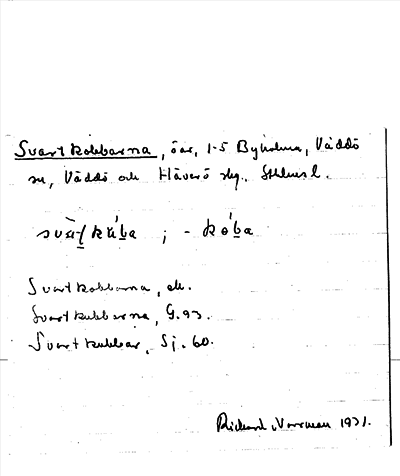 Svartkobbarna, öar, 1-5 Byholma, Väddö
sn, Väddö och Häverö skg. Sthlms l.
svàʈkúba ; - kóba
Svartkobbarna, ek.
Svartkubbarna, G.93.
Svartkubbar, Sj. 60.
Rickard Norrman 1931.